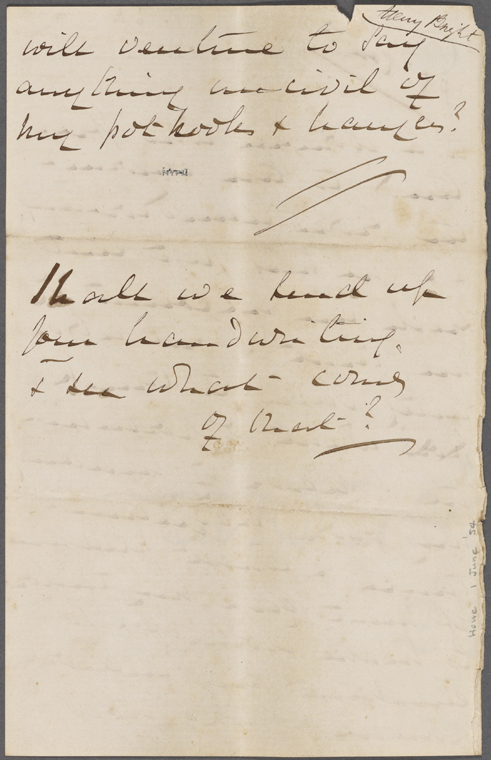 Henry Bright
will venture to say
anything uncivil of
my pothooks & hanges?
Shall we send up
your handwriting,
& see what comes
of that?
Howe 1 June '54